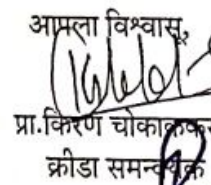 आपला विश्वासू,
प्रा.किरण चोकाककर
क्रीडा समन्वयक